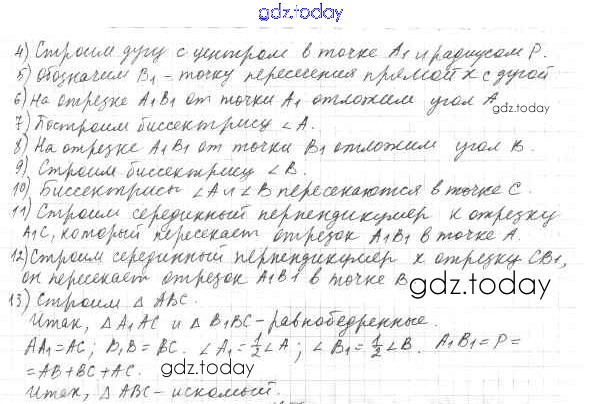 gdz.today
4) Строим дугу с центром в точке A₁ и радиусом P.
5) Обозначим B₁ - точку пересечения прямой X с дугой
6) На отрезке A₁B₁ от точки A₁ отложим угол A.
gdz.today
7) Построим биссектрису ∠A.
8) На отрезке A₁B₁ от точки B₁ отложим угол B.
9) Строим биссектрису ∠B.
10) Биссектрисы ∠A и ∠B пересекаются в точке C.
11) Строим серединный перпендикуляр к отрезку
A₁C, который пересекает отрезок A₁B₁ в точке A.
12) Строим серединный перпендикуляр к отрезку CB₁,
он пересекает отрезок A₁B₁ в точке B
gdz.today
13) Строим △ABC.
Итак, △A₁AC и △B₁BC - равнобедренные.
AA₁=AC; B₁B=BC. ∠A₁=½∠A; ∠B₁=½∠B. A₁B₁=P=
=AB+BC+AC.
gdz.today
Итак, △ABC - искомый.